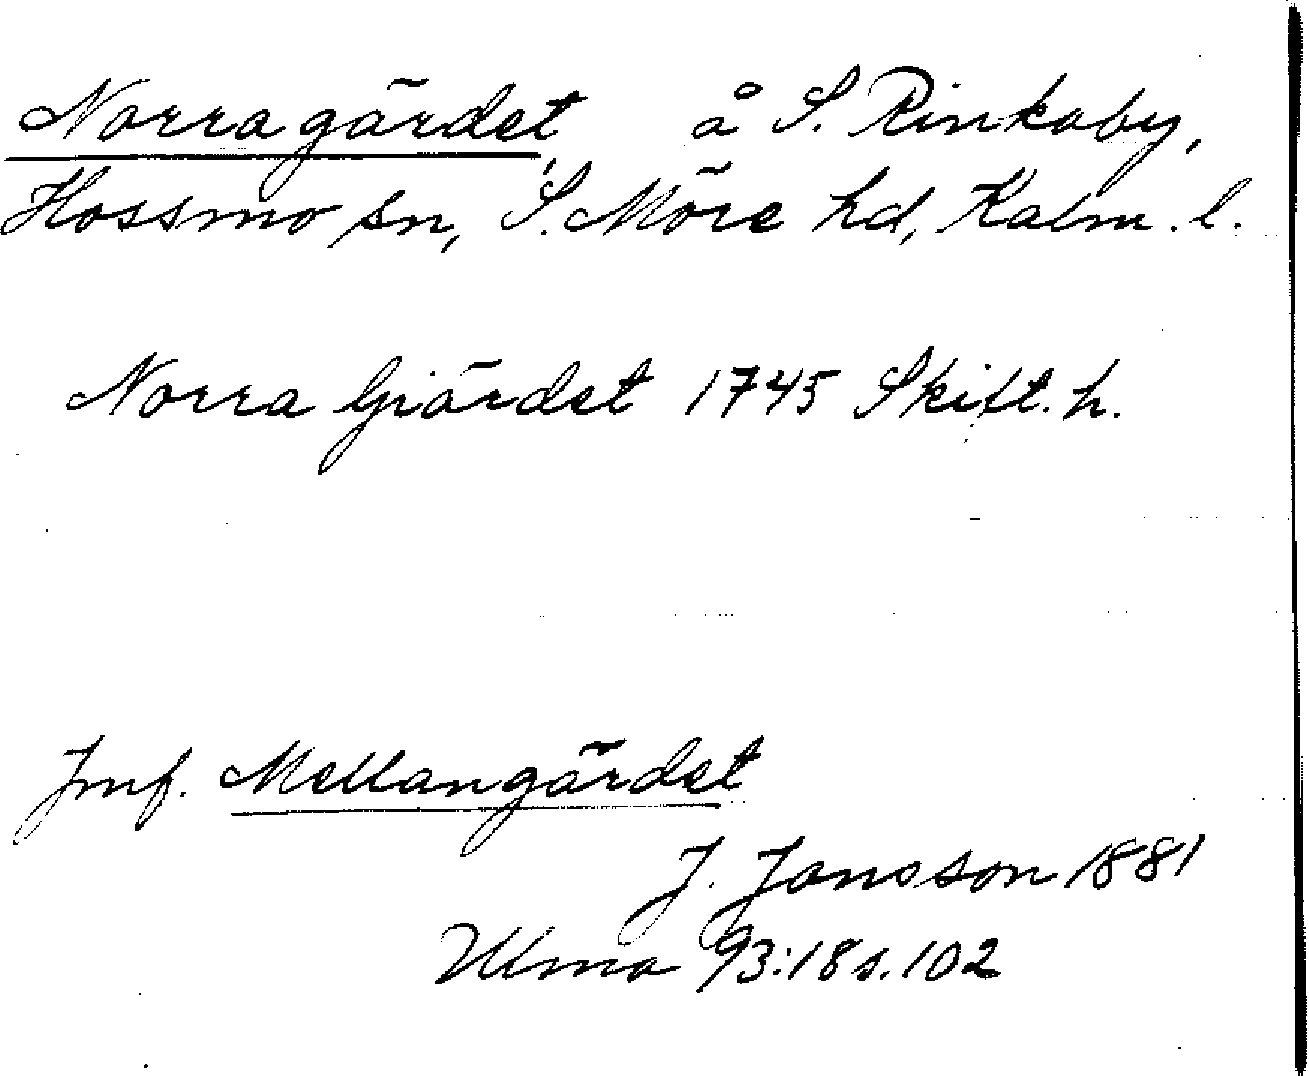 Norra gärdet, å S. Rinkaby,
Hossmo sn, S. Möre hd, Kalm. l.
Norra Giärdet 1745 Skift. h.
Jmf. Mellangärdet
J. Jonsson 1881
Ulma 93:18 s. 102